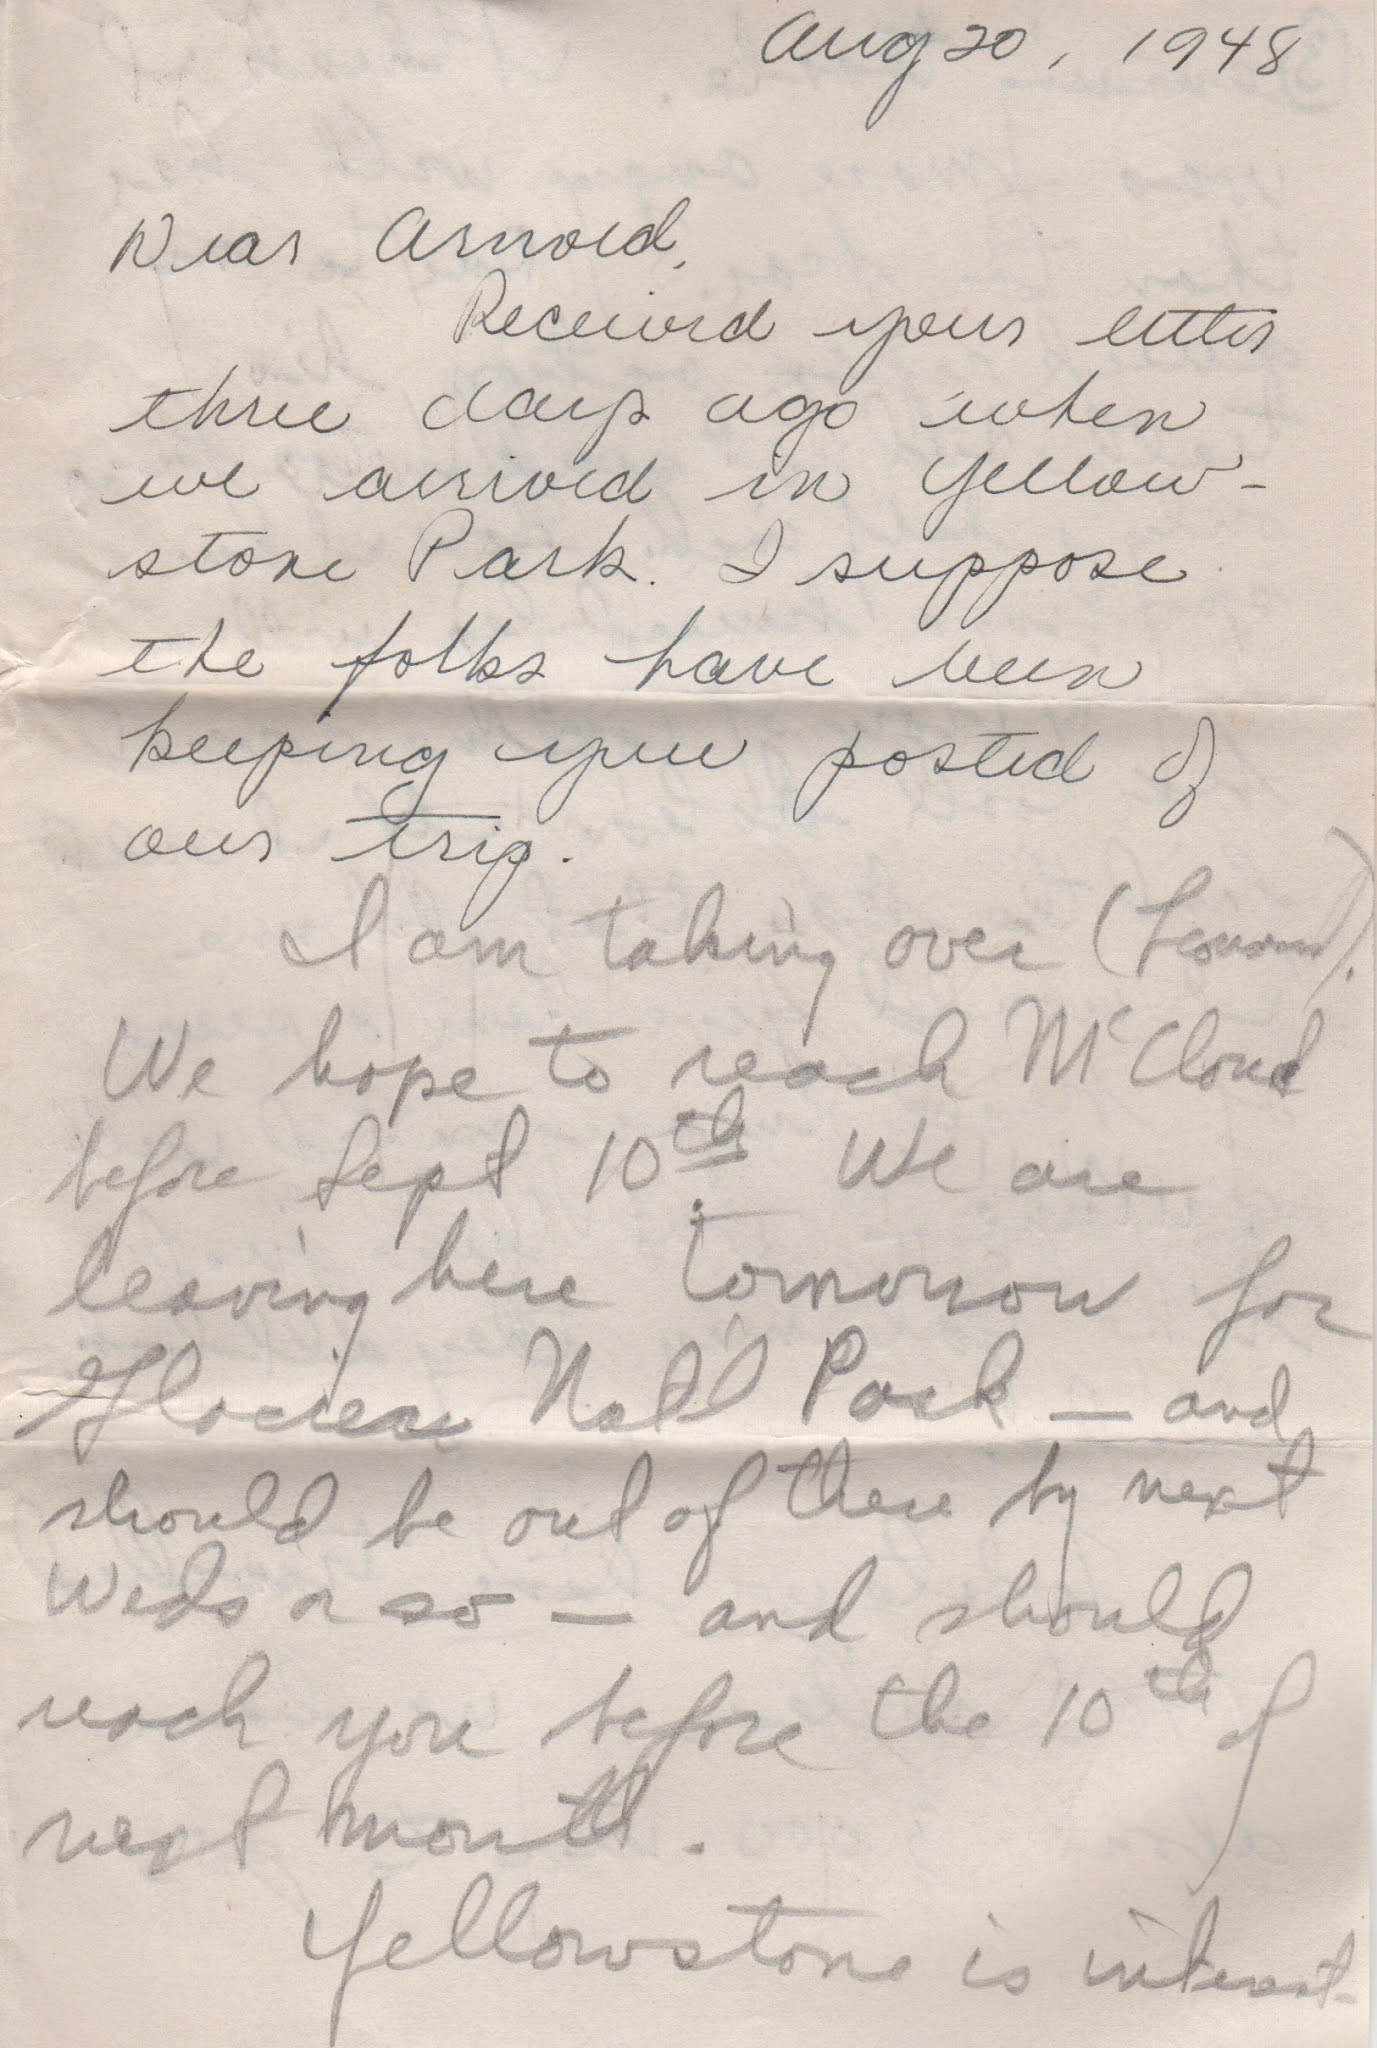 Aug 20, 1948
Dear Arnold,
Received your letter
three days ago when
we arrived in Yellow-
stone Park. I suppose
the folks have been
keeping you posted of
our trip.
I am taking over (Leonard).
We hope to reach McCloud
before Sept 10th. We are
leaving here tomorrow for
Glacier Nat'l Park — and
should be out of there by next
Weds or so — and should
reach you before the 10th of
next month.
Yellowstone is interest-